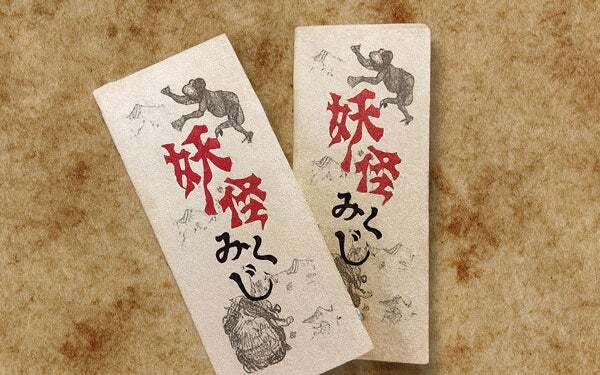 妖怪
みくじ
妖怪
みくじ